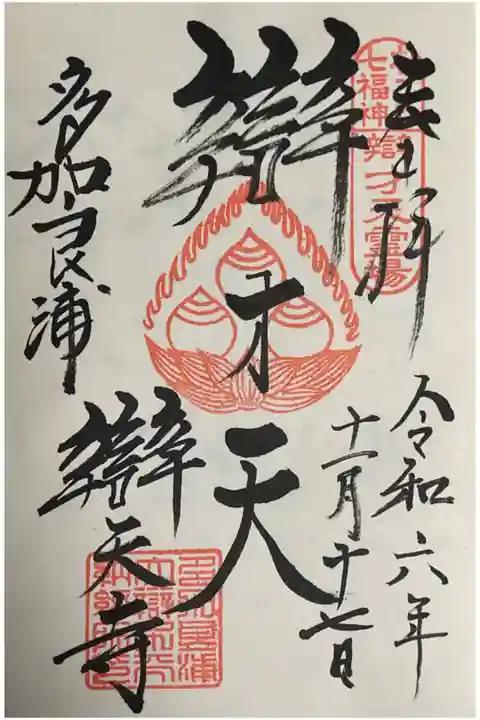 奉拝
令和六年
十一月十七日
辯才天
多加良浦
辯天寺
七福神
辯才天霊場